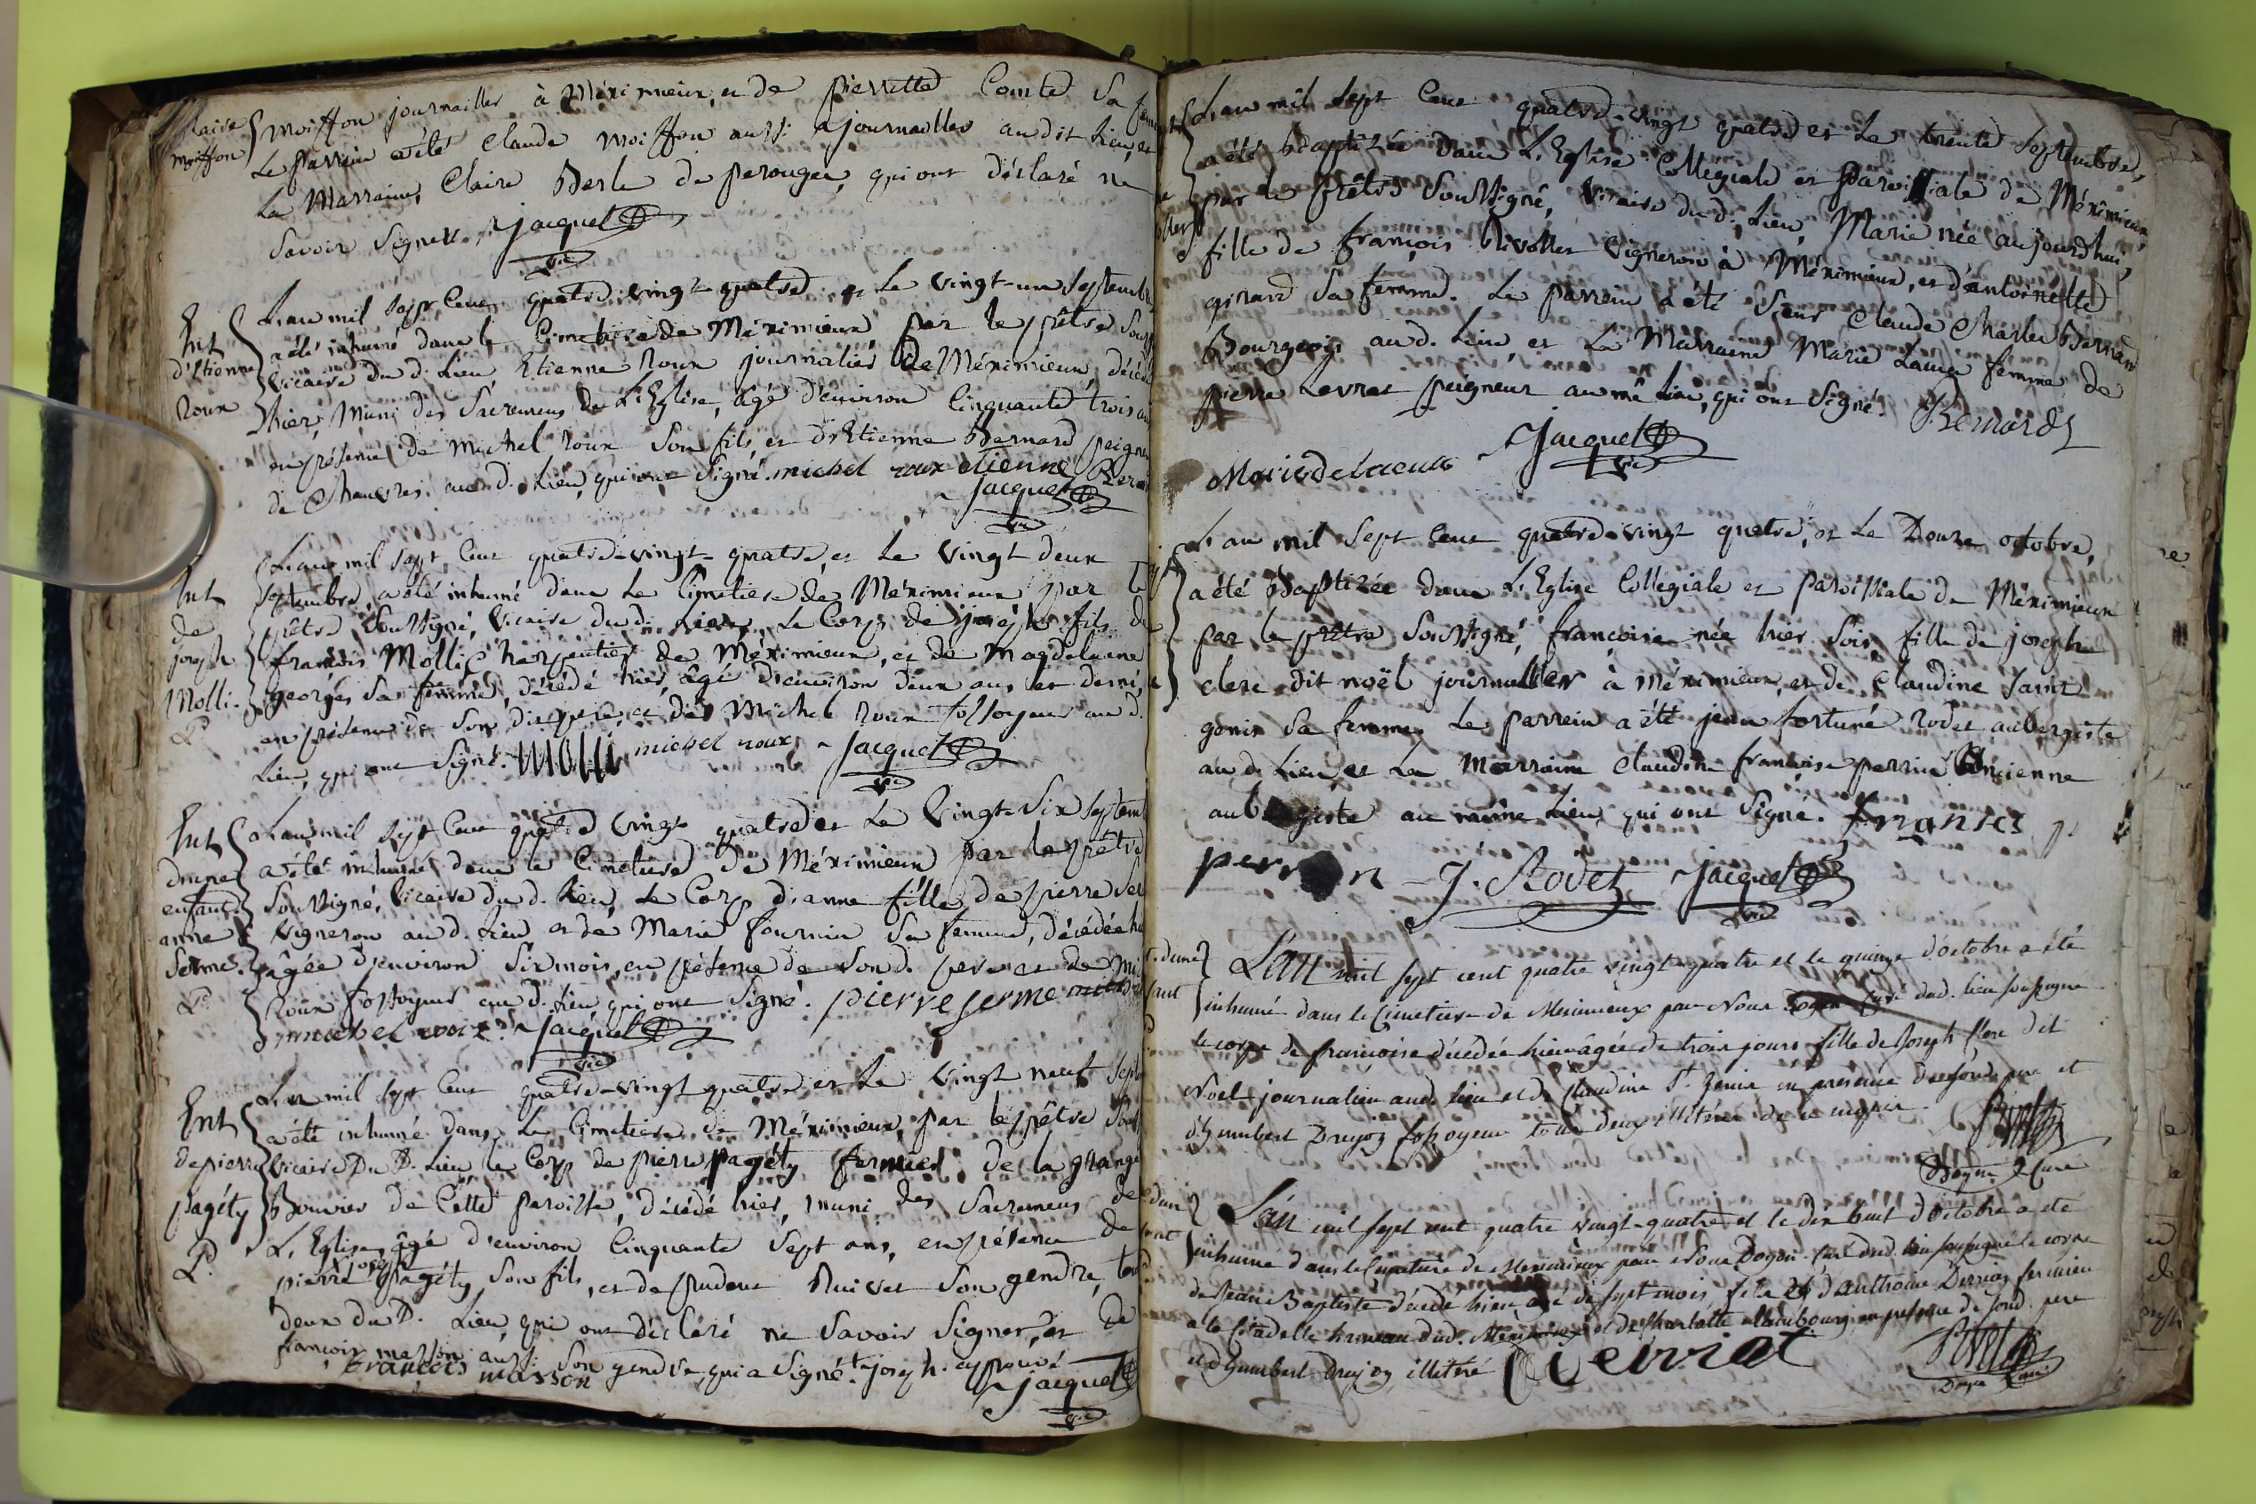 moiffon journaillier à Méximieux, et de pierrette Comte Sa
Le parrein a été Claude moiffon aussi journaillier audit Lieu, et
La Marraine, Claire Berle de perouges, qui ont déclaré ne
Savoir Signer. Jacquet
vic
moiffon
L'an mil Sept Cent quatre-vingt-quatre et Le vingt-un Septembre
a été inhumé dans le Cimetiere de Méximieux par le prêtre
vicaire du d. Lieu Etienne Roux journalier de Méximieux, décédé
hier, Muni des Sacremens de L'Eglise, âgé d'environ Cinquante trois ans
en présence de Michel roux Son fils, et d'Etienne Bernard peigneur
de Chanvres au d. Lieu, qui ont Signé. michel roux etienne
Jacquet
vic
Ent
d'Etienne
Roux
L'an mil Sept Cent quatre-vingt-quatre, et Le vingt deux
Septembre, a été inhumé dans Le Cimetiere de Méximieux par le
prêtre Soussigné, Vicaire du d. Lieu, Le Corps de joseph fils de
françois Molli Charpentier de Méximieux, et de Magdelaine
georges Sa femme, décédé hier, âgé d'environ deux ans et demi,
en présence de Son dit pere, et de Michel Roux fossoyeur au d.
Lieu, qui ont Signé. molli michel roux Jacquet
vic
Ent
de
joseph
Molli.
L'an mil Sept Cent quatre vingt quatre et Le Vingt-Six Septembre
a été inhumé dans le Cimetiere de Méximieux par le prêtre
Soussigné, Vicaire du d. Lieu, Le Corps d'anne fille de pierre
Vigneron au d. Lieu et de Marie fournier Sa femme, décédée
âgée d'environ Six mois, en présence de Son d. pere et de
Roux fossoyeur au d. Lieu qui ont Signé. pierre serme
michel roux Jacquet
vic
Ent
d'une
enfant
anne
Serme.
L'an mil Sept Cent quatre-vingt quatre et Le Vingt neuf
a été inhumé dans Le Cimetiere de Méximieux, par le prêtre
Vicaire Du D. Lieu, Le Corps de pierre pagéty fermier de la grange
Bouvier de Cette paroisse, décédé hier, muni des Sacremens de
L'Eglise, âgé d'environ Cinquante Sept ans, en présence de
pierre joseph pagéty Son fils, et de prudent Ruivet Son gendre,
deux du D. Lieu, qui ont déclaré ne Savoir Signer, et de
françois masson aussi Son gendre, qui a Signé. joseph approuvé
francois masson Jacquet
vic
Ent
de pierre
pagéty
L'an mil Sept Cent quatre-vingt quatre et Le trente Septembre,
a été baptizée dans L'Eglise Collégiale et paroissiale de Méximieux
par le prêtre Soussigné, Vicaire du d. Lieu, Marie née aujourdhui,
fille de françois Rivollet Vigneron à Méximieux, et d'antoinette
girard Sa femme. Le parrein a été Sieur Claude Charles Bernard
Bourgeois au d. Lieu, et La Marraine Marie femme de
pierre Levrat peigneur au mê Lieu, qui ont Signé. Bernard
Jacquet
vic
L'an mil Sept Cent quatre-vingt quatre, et Le Douze octobre,
a été Baptizée dans L'Eglise Collégiale et paroissiale de Méximieux
par le prêtre Soussigné, françoise née hier Soir, fille de joseph
clerc dit noël journallier à Méximieux, et de Claudine Saint
genis Sa femme. Le parrein a été jean fortuné Rodet aubergiste
au d. Lieu et La Marraine Claudine françoise perrin Ancienne
aubergiste au même Lieu, qui ont Signé.
J. Rodet Jacquet
vic
L'an mil sept cent quatre vingt-quatre et le quinze d'octobre a été
inhumé dans le Cimetiere de Meximieux par Nous Doyen Curé dud. lieu soussigné
le corps de françoise décédée hier âgée de trois jours fille de Joseph Clerc dit
Noël journalier aud. lieu et de Claudine St. Genis en présence de son d. pere et
d'humbert Drujoz fossoyeur tous deux illitérés de ce enquis.
Doyen & Curé
d'une
L'an mil sept cent quatre vingt-quatre et le dix huit d'octobre a été
inhumé dans le Cimetiere de Meximieux par Nous Doyen Curé dud. lieu soussigné le corps
de Jean Baptiste décédé hier, âgé de sept mois fils d'anthoine fermier
a la Citadelle hameau dud. Meximieux et de Charlotte en présence de sond. pere
et d'humbert Drujoz illitéré
Doyen Curé